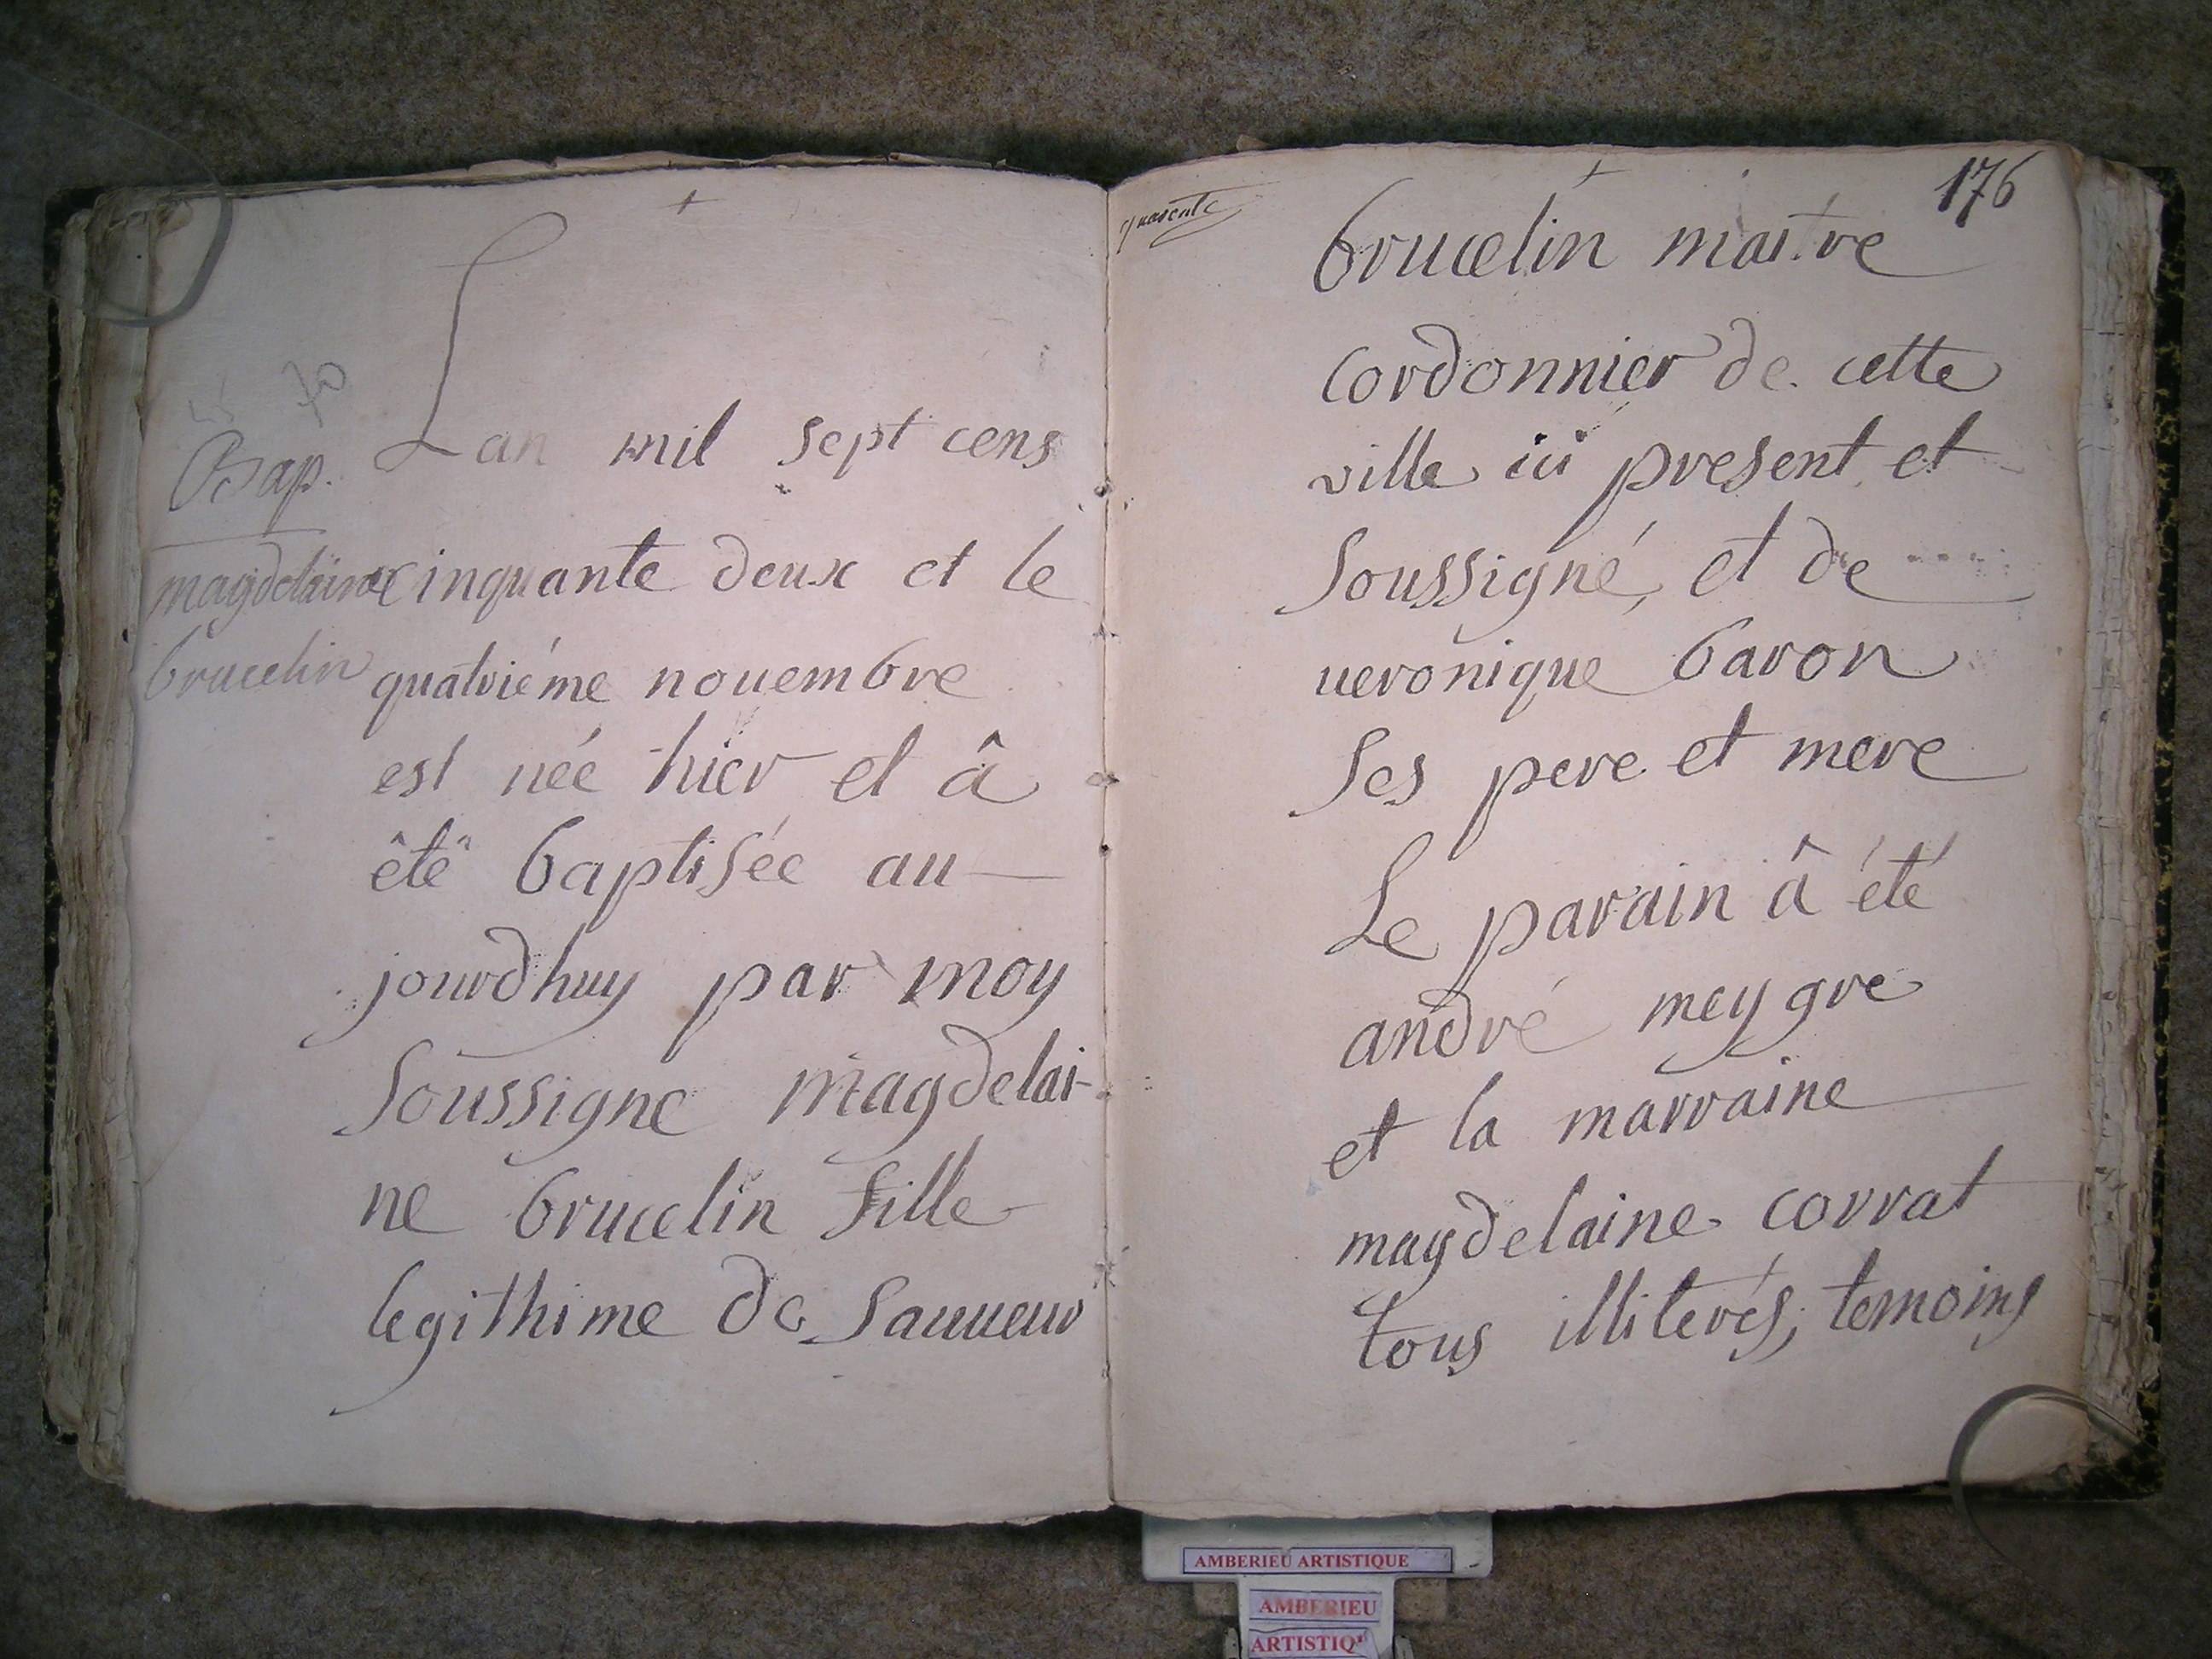 +
70
Bap.
magdelaine
brucelin
Lan mil sept cens
cinquante deux et le
quatriéme nouembre
est née hier et â
êtê baptisée au
jourdhuy par moy
soussigne magdelai-
ne brucelin fille
legithime de sauueur
quarente
+
176
brucelin maitre
cordonnier de cette
ville ici present et
soussigné, et de
ueronique baron
ses pere et mere
Le parain â été
andré meygre
et la marraine
magdelaine corrat
tous illiterés, temoins
AMBERIEU ARTISTIQUE
AMBERIEU
ARTISTIQ